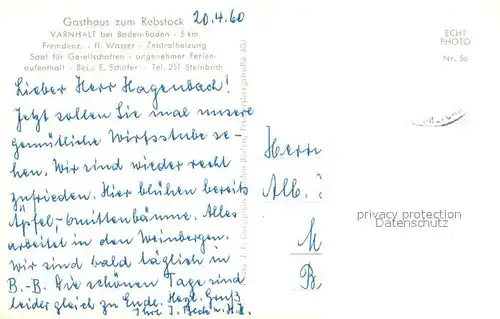 Gasthaus zum Rebstock
20.4.60
VARNHALT bei Baden-Baden - 5 km
Fremdenz. - fl. Wasser - Zentralheizung
Saal für Gesellschaften - angenehmer Ferien-
aufenthalt - Bes.: E. Schäfer - Tel. 251 Steinbach
Lieber Herr Hagenbach!
Jetzt sollen Sie mal unsere
gemütliche Wirtsstube se-
hen. Wir sind wieder recht
zufrieden. Hier blühen bereits
Äpfel,- Quittenbäume. Alles
arbeitet in den Weinbergen.
Wir sind bald täglich in
B.-B. Die schönen Tage sind
leider gleich zu Ende. Herzl. Gruß
Ihre J. Beck u.
ECHT
PHOTO
Nr. 56
Herrn
Alb.
M
B
privacy protection
Datenschutz